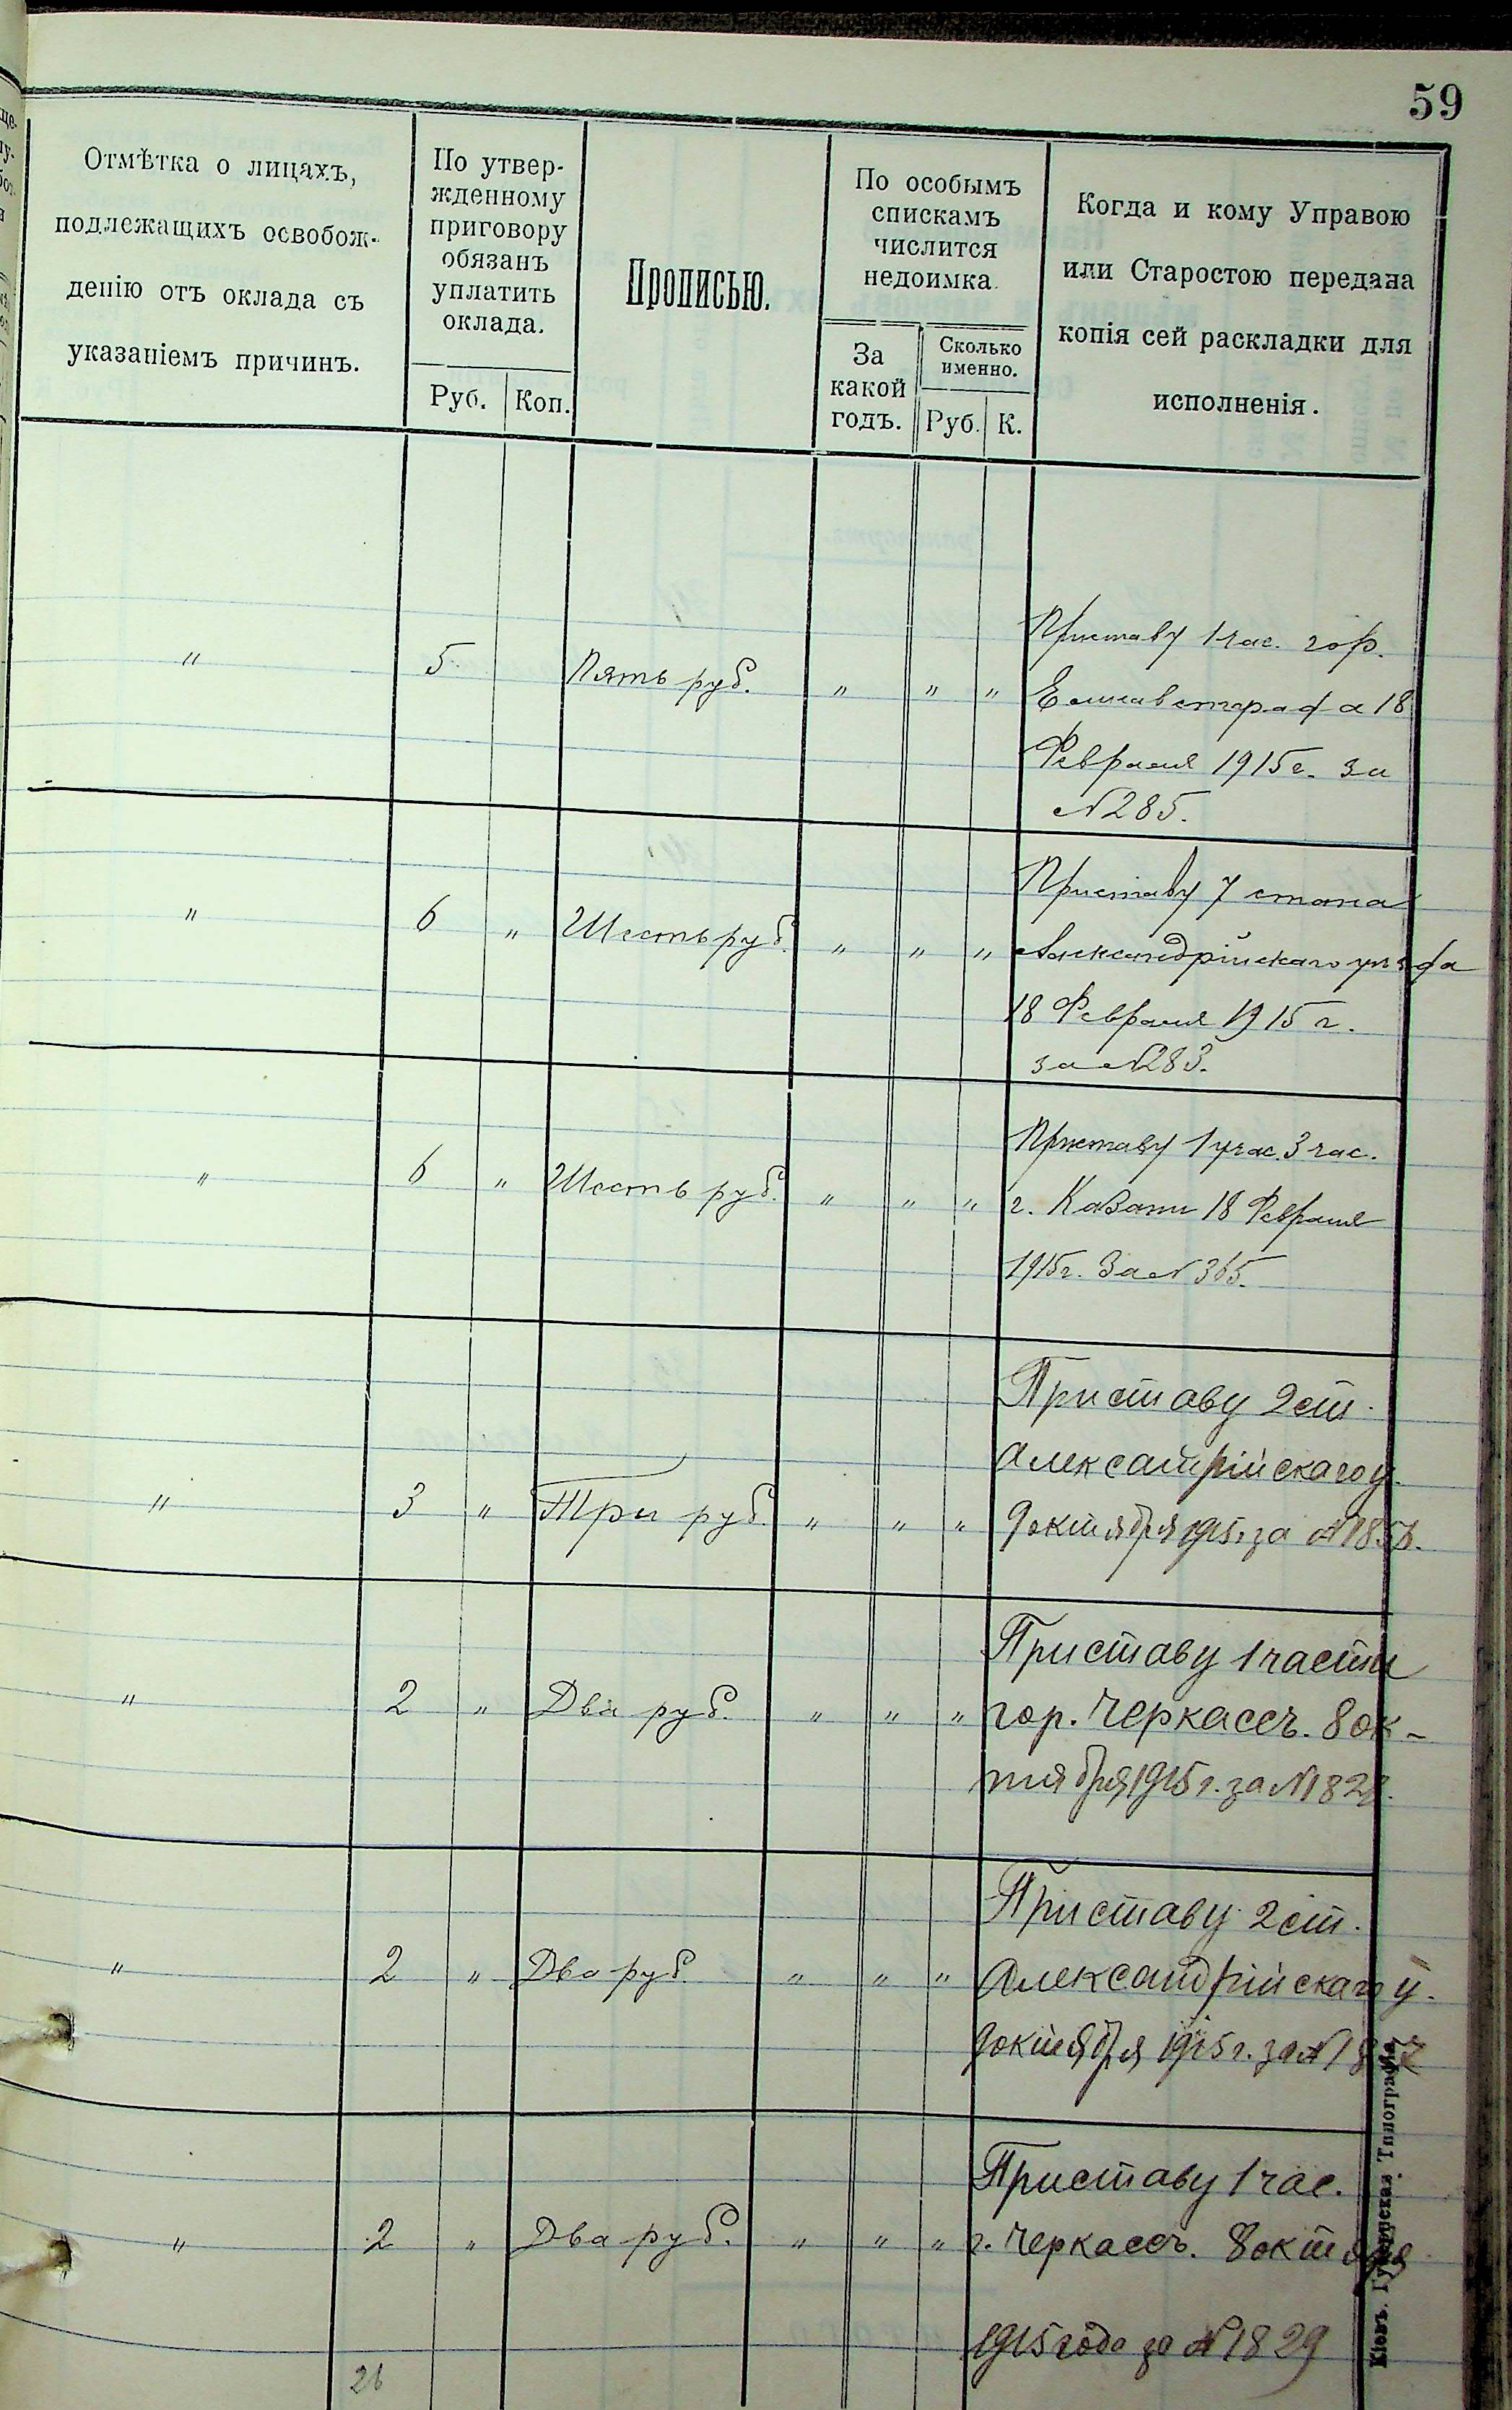 59
Отмѣтка о лицахъ,
подлежащихъ освобож-
денію отъ оклада съ
указаніемъ причинъ.
По утвер-
жденному
приговору
обязанъ
уплатить
оклада.
Руб. Коп.
Прописью.
По особымъ
спискамъ
числится
недоимка.
За
какой
годъ.
Сколько
именно.
Руб. К.
Когда и кому Управою
или Старостою передана
копія сей раскладки для
исполненія.
" 5 Пять руб. " " "
Приставу 1 час. гор.
Елисаветграда 18
Февраля 1915 г. за
№ 285.
" 6 " Шесть руб. " " "
Приставу 7 стана
Александрійскаго уѣзда
18 Февраля 1915 г.
за № 283.
" 6 " Шесть руб. " " "
Приставу 1 учас. 3 час.
г. Казани 18 Февраля
1915 г. За № 365.
" 3 " Три руб. " " "
Приставу 2 ст.
Александрійскаго у.
9 октября 1915 г. за №
" 2 " Два руб. " " "
Приставу 1 части
гор. Черкассъ. 8 ок-
тября 1915 г. за № 1828.
" 2 " Два руб. " " "
Приставу 2 ст.
Александрійскаго у.
9 октября 1915 г. за №
" 2 " Два руб. " " "
Приставу 1 час.
г. Черкассъ. 8 октября
1915 года за № 1829
26
Кіевъ. Губернская Типографія